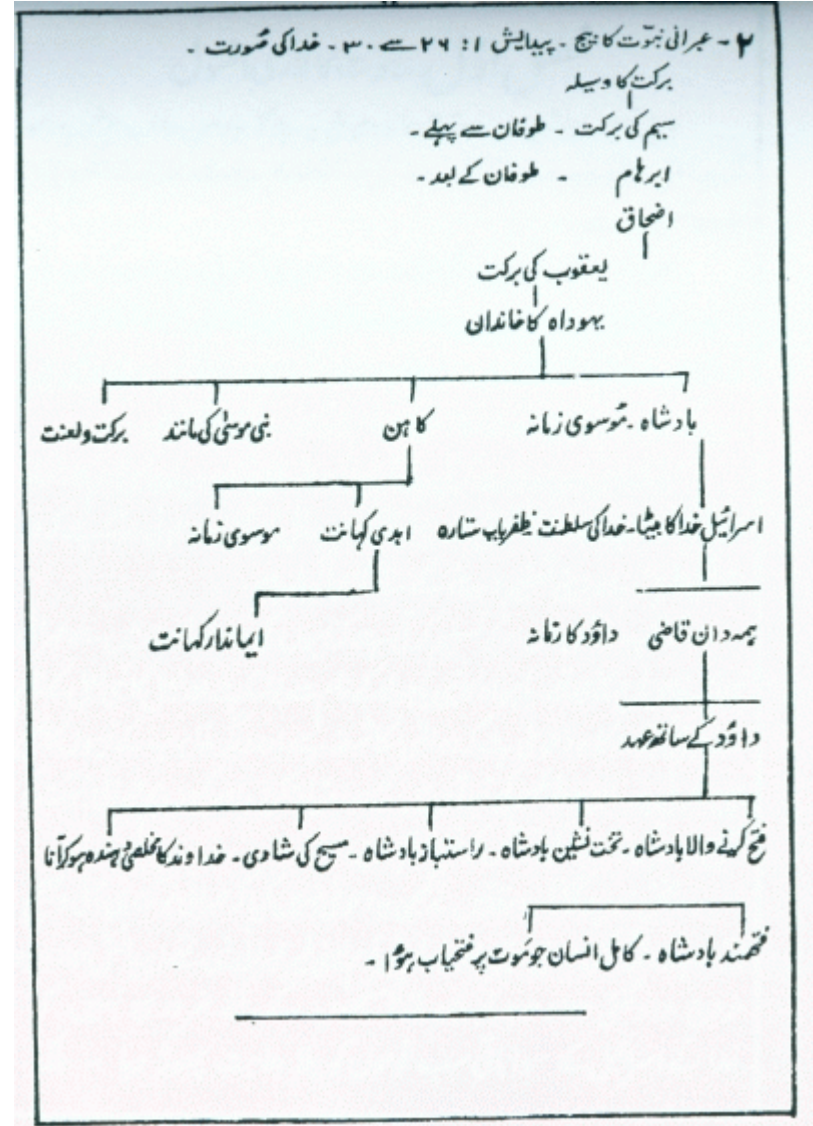 ۲ - عبرانی نبوّت کا بیج - پیدایش ۱: ۲۶ سے ۳۰ - خدا کی صُورت -
برکت کا وسیلہ
سیم کی برکت - طوفان سے پہلے -
ابرہام - طوفان کے بعد -
اضحاق
یعقوب کی برکت
یہوداہ کا خاندان
بادشاہ - مُوسوی زمانہ کاہن نبی موسیٰ کی مانند برکت و لعنت
اسرائیل خدا کا بیٹا - خدا کی سلطنت - ظفریاب ستارہ ابدی کہانت موسوی زمانہ
ہمہ دان قاضی داؤد کا زمانہ ایماندار کہانت
داؤد کے ساتھ عہد
فتح کرنے والا بادشاہ - تخت نشین بادشاہ - راستباز بادشاہ - مسیح کی شادی - خداوند کا مخلصی دہندہ ہو کر آنا
فتحمند بادشاہ - کامل انسان جو مَوت پر فتحیاب ہؤا -